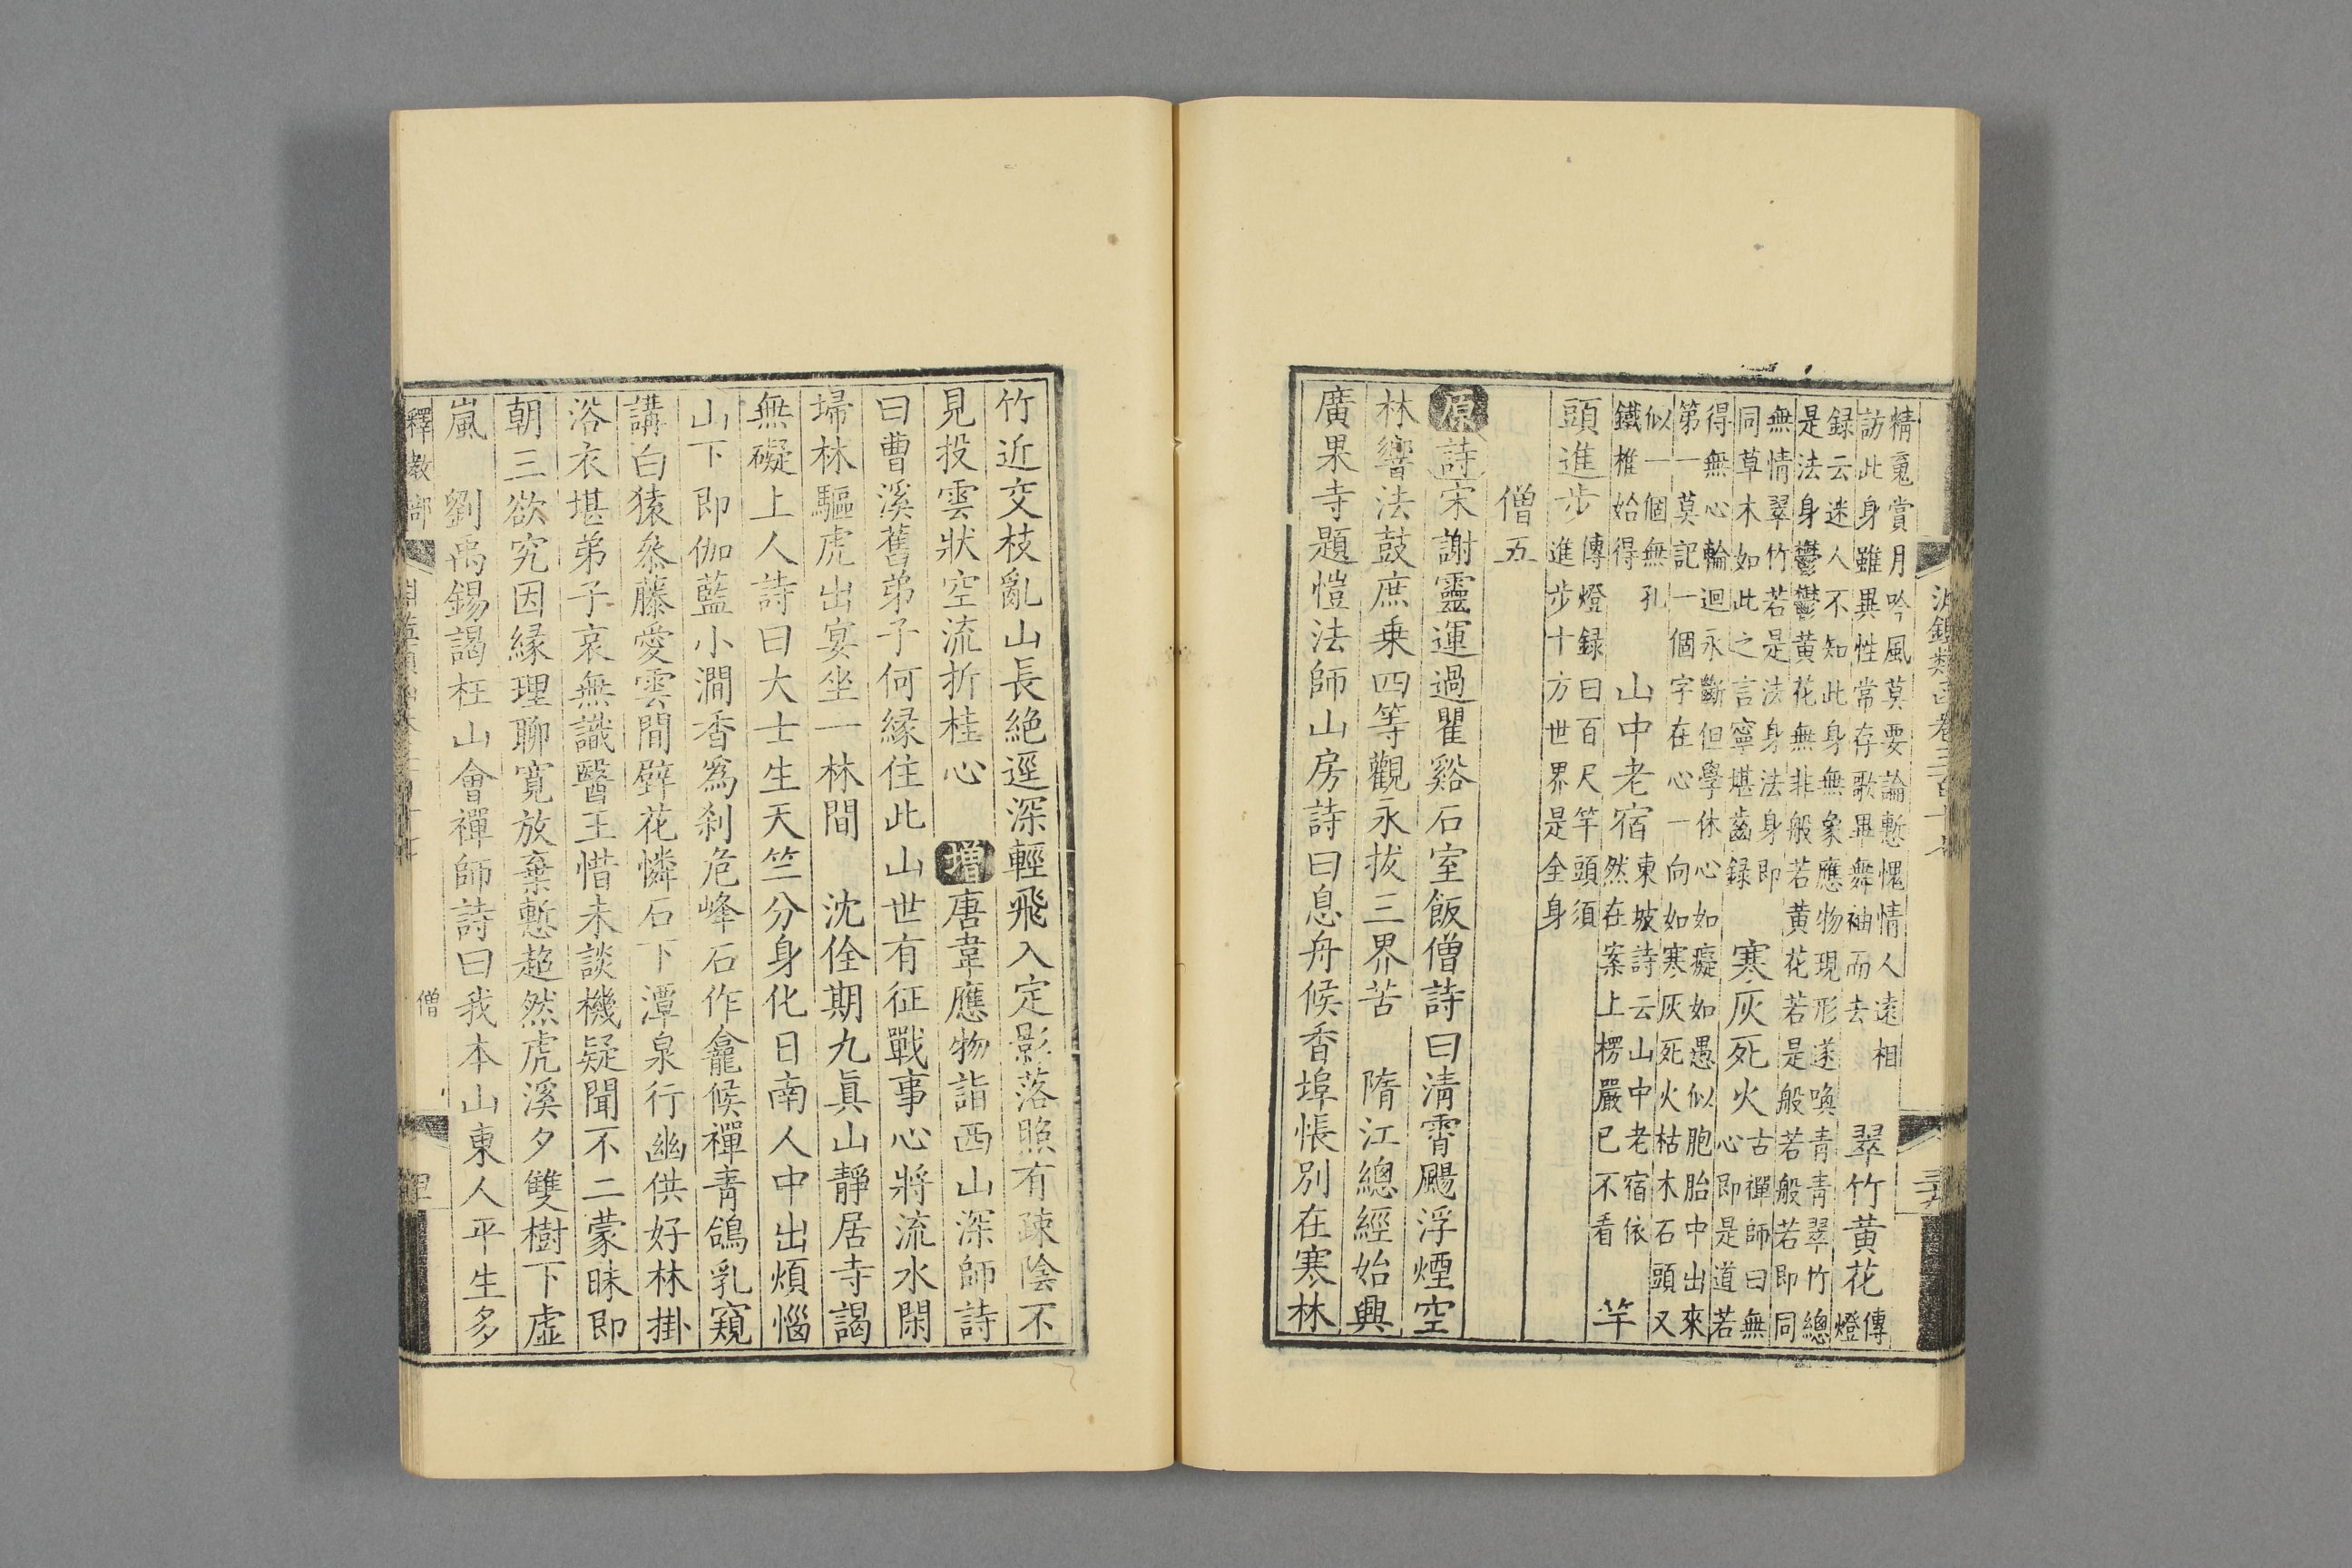 精䰟賞月吟風莫要論慙愧情人遠相
訪此身雖異性常存歌畢舞袖而去
翠竹黄花
傳
燈
録云迷人不知此身無象應物現形遂喚青青翠竹總
是法身鬱鬱黄花無非般若黄花若是般若般若即同
無情翠竹若是法身法身即
同草木如此之言寧堪齒録
寒灰死火
古禪師曰無
心即是道若
得無心輪迴永斷但學休心如癡如愚似胞胎中出來
第一莫記一個字在心一向如寒灰死火枯木石頭又
似一個無孔
鐵椎始得
山中老宿
東坡詩云山中老宿依
然在案上楞嚴已不看
竿
頭進步
傳燈録曰百尺竿頭須
進步十方世界是全身
僧五
原詩宋謝靈運過瞿谿石室飯僧詩曰清霄颺浮煙空
林響法鼓庶乗四等觀永拔三界苦 隋江總經始興
廣果寺題愷法師山房詩曰息舟候香埠悵別在寒林
竹近交枝亂山長絶逕深輕飛入定影落照有疎陰不
見投雲狀空流折桂心 増唐韋應物詣西山深師詩
曰曹溪舊弟子何縁住此山世有征戰事心將流水閑
埽林驅虎出宴坐一林間 沈佺期九眞山靜居寺謁
無礙上人詩曰大士生天竺分身化日南人中出煩惱
山下即伽藍小澗香爲刹危峰石作龕候禪青鴿乳窺
講白猿叅藤愛雲間壁花憐石下潭泉行幽供好林掛
浴衣堪弟子哀無識醫王惜未談機疑聞不二蒙昧即
朝三欲究因縁理聊寬放棄慙超然虎溪夕雙樹下虛
嵐 劉禹錫謁枉山會禪師詩曰我本山東人平生多
釋教部
僧